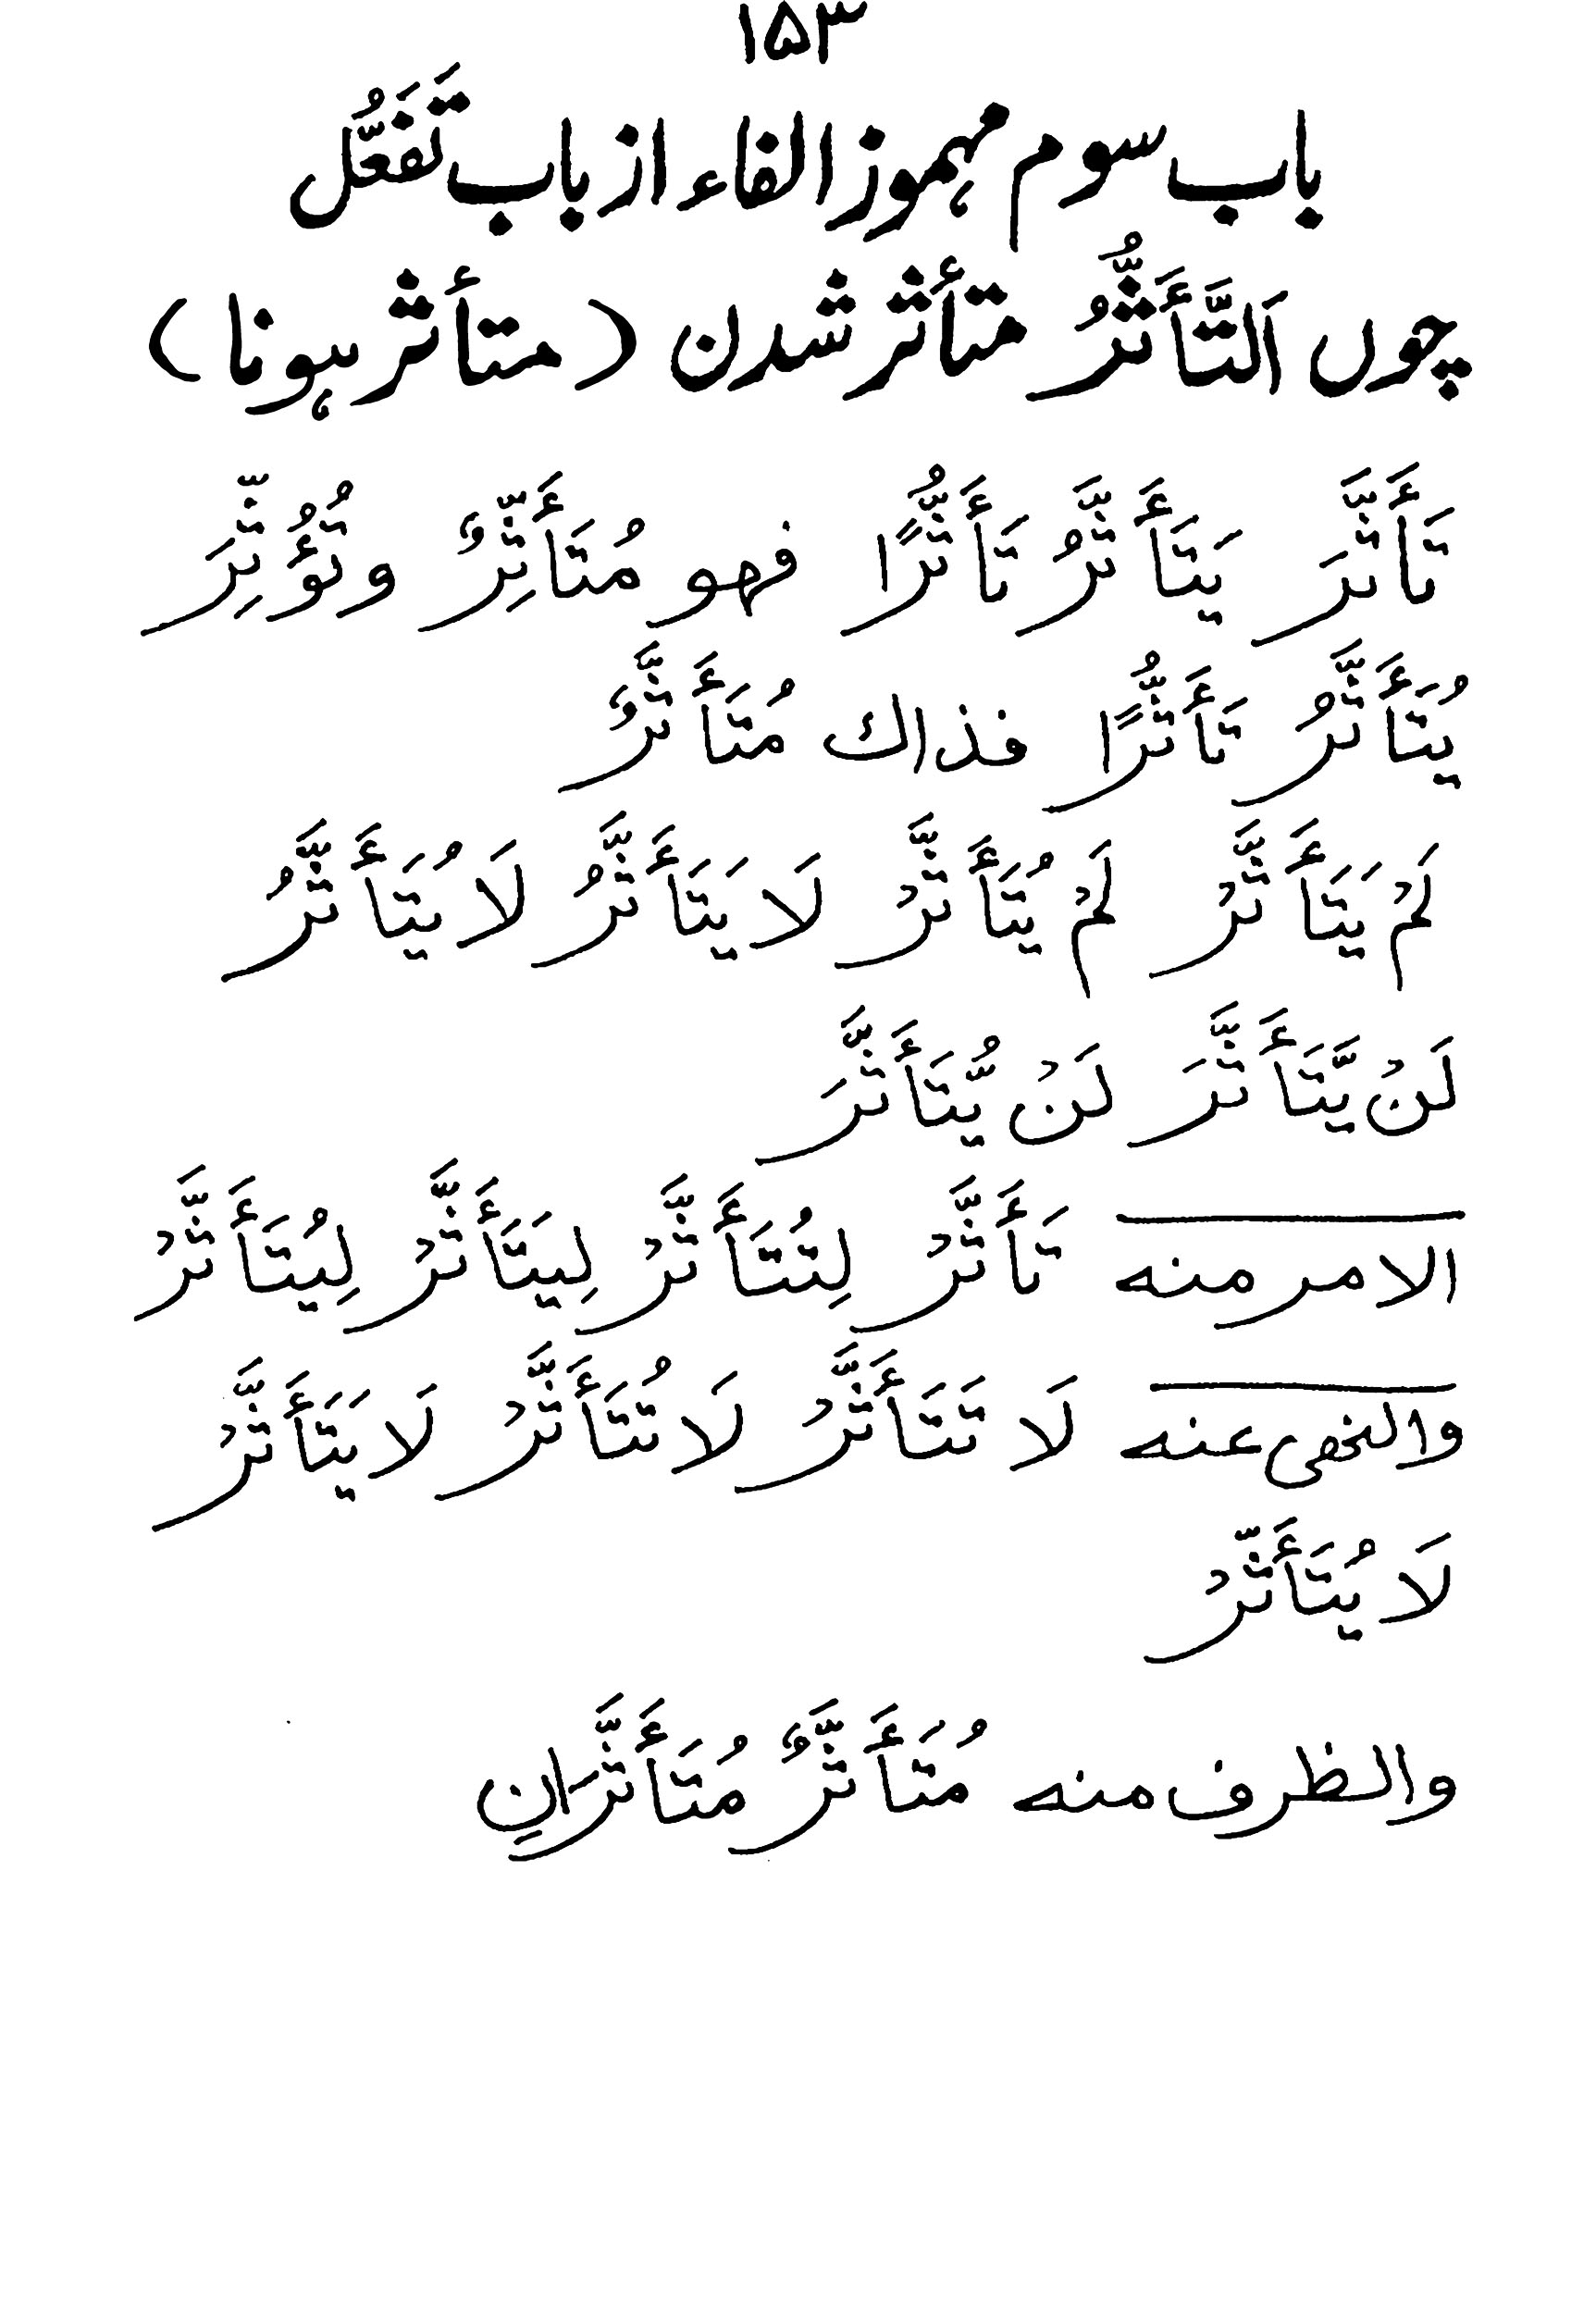 ۱۵۳
باب سوم مہموز الفاء از باب تَفَعُّل
چوں اَلتَّأَثُّرُ متأثر شدن (متأثر ہونا)
تَأَثَّرَ يَتَأَثَّرُ تَأَثُّرًا فهو مُتَأَثِّرٌ وتُؤُثِّرَ
يُتَأَثَّرُ تَأَثُّرًا فذاك مُتَأَثَّرٌ
لَمْ يَتَأَثَّرْ لَمْ يُتَأَثَّرْ لَا يَتَأَثَّرُ لَا يُتَأَثَّرُ
لَنْ يَّتَأَثَّرَ لَنْ يُّتَأَثَّرَ
الامر منه تَأَثَّرْ لِتُتَأَثَّرْ لِيَتَأَثَّرْ لِيُتَأَثَّرْ
والنهى عنه لَا تَتَأَثَّرْ لَا تُتَأَثَّرْ لَا يَتَأَثَّرْ
لَا يُتَأَثَّرْ
والظرف منه مُتَأَثَّرٌ مُتَأَثَّرَانِ